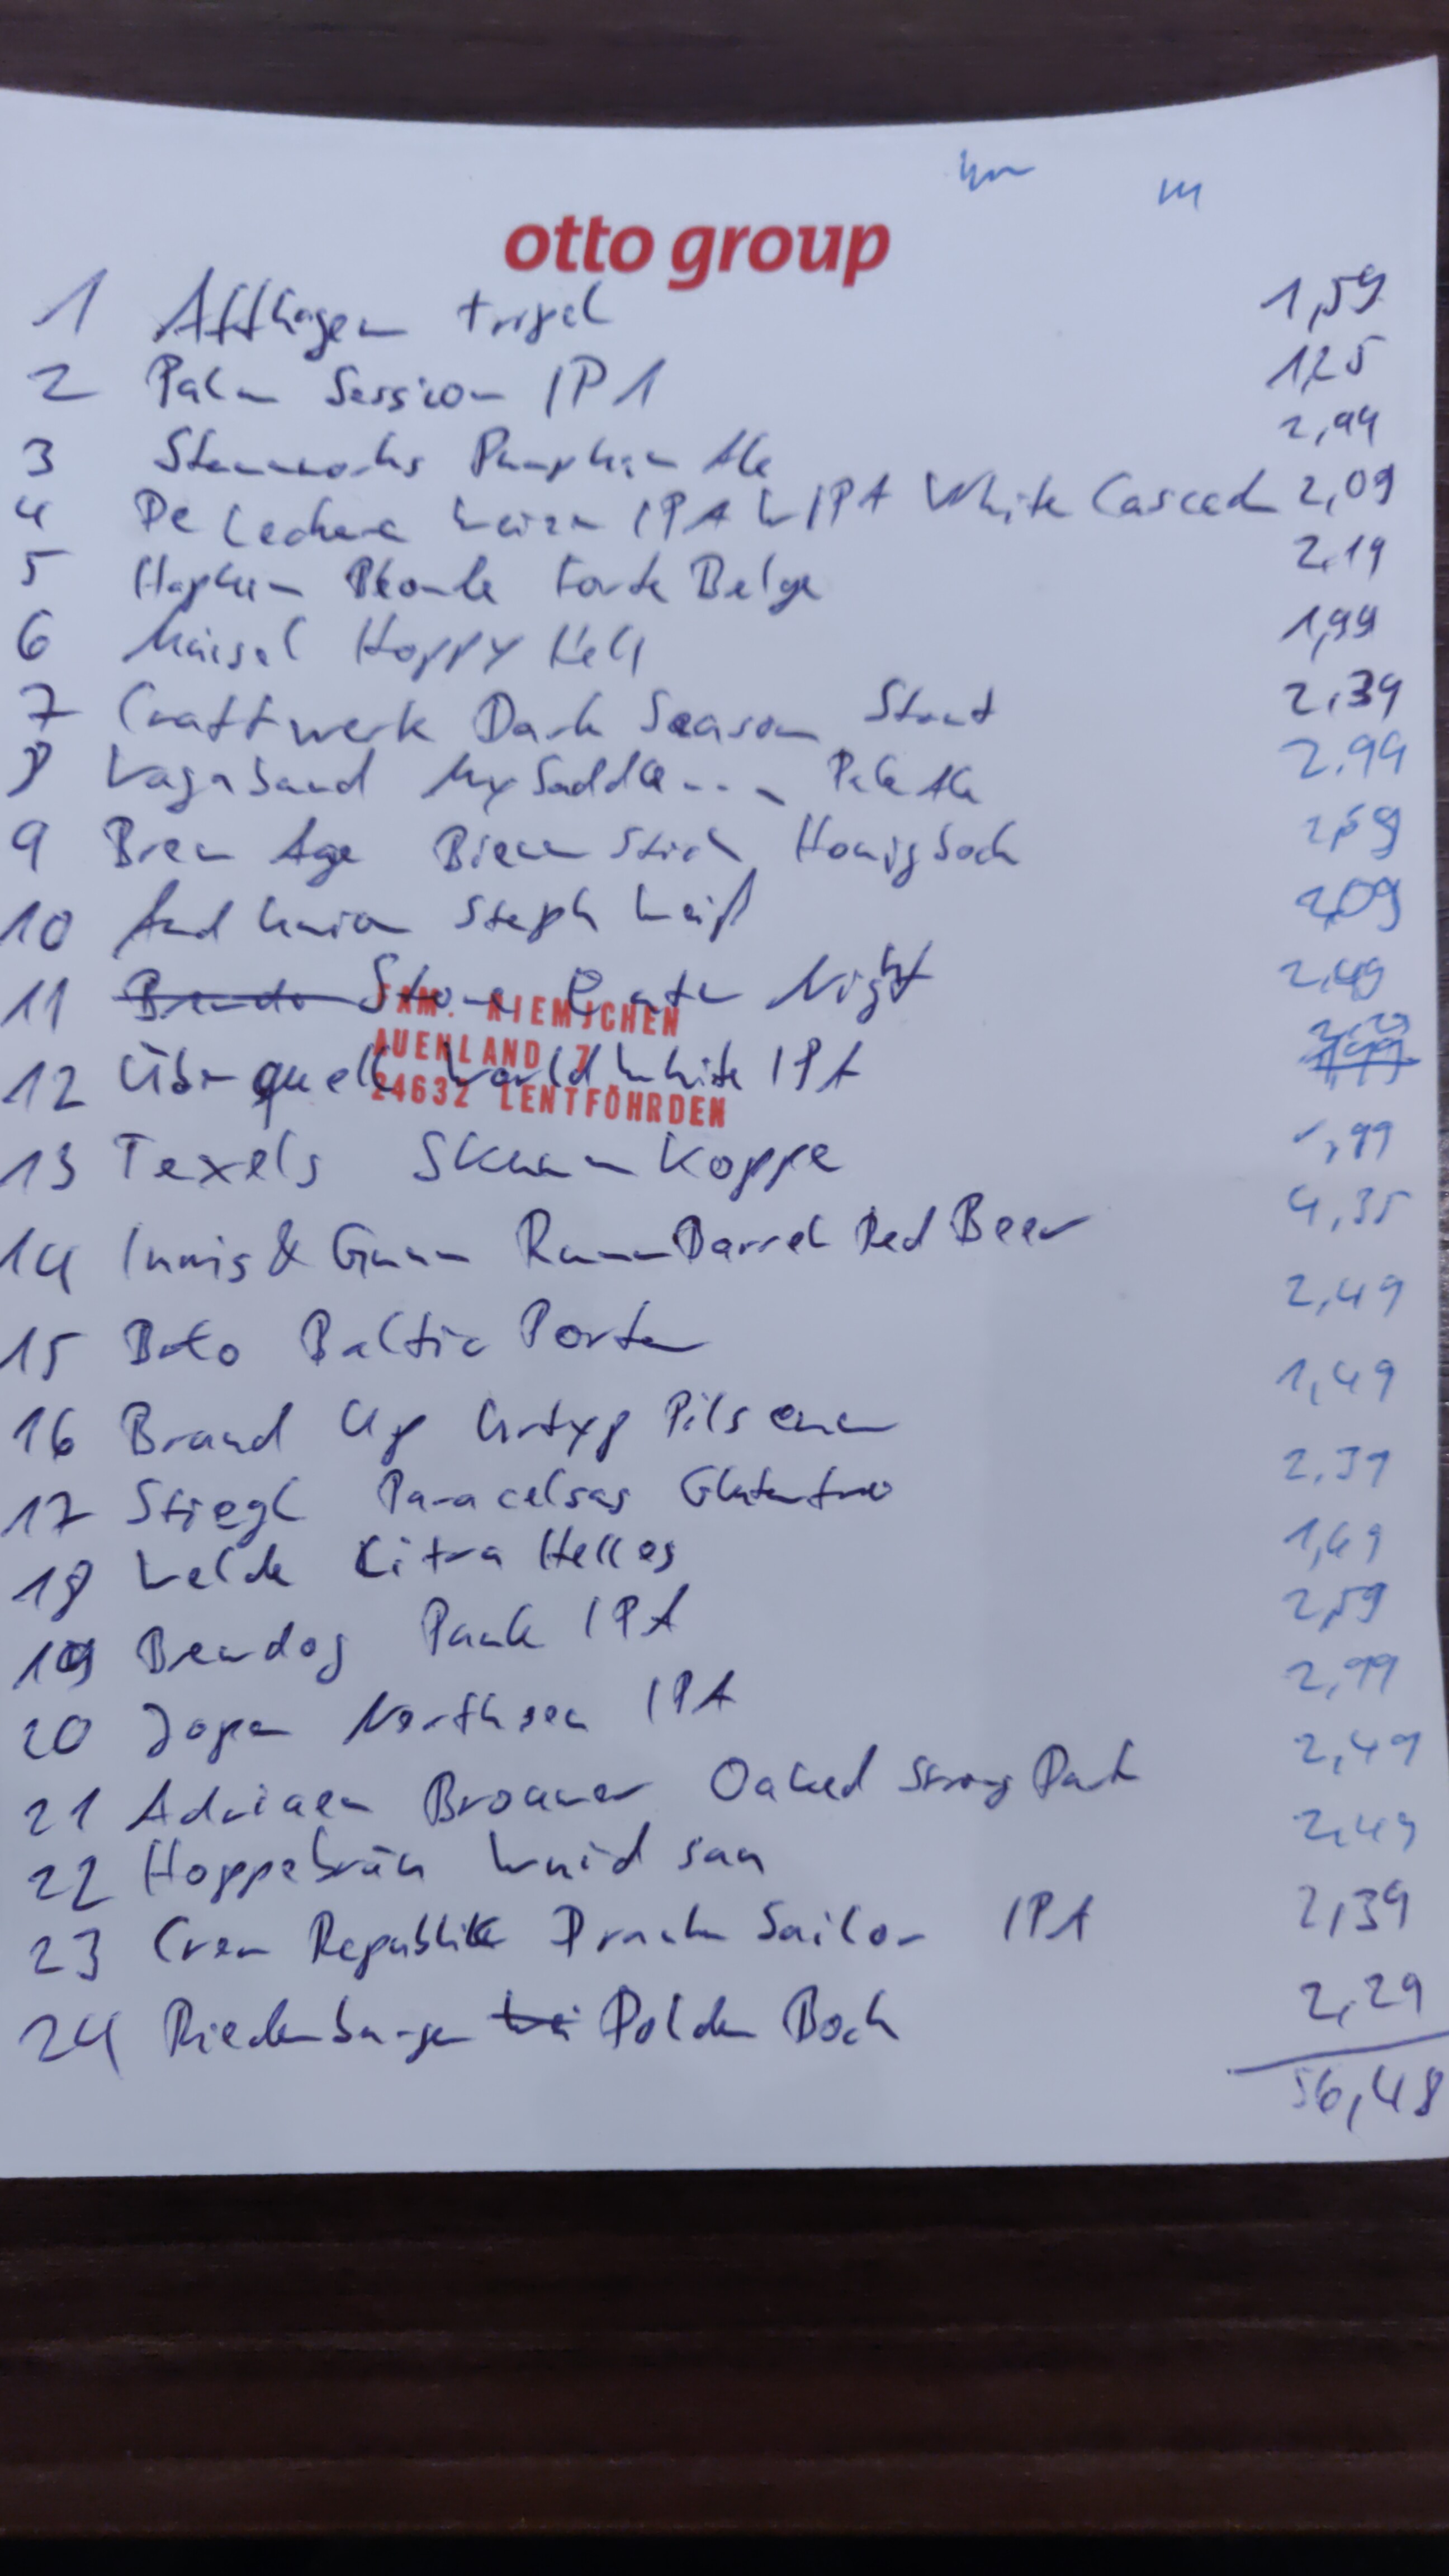 otto group
1 Affligem tripel 1,59
2 Palm Session IPA 1,25
3 Pumpkin Ale 2,94
4 De Leckere Weizen IPA WIPA White Cascade 2,09
5 Blonde Forte Belge 2,19
6 Maisel Hoppy Hell 1,99
7 Craftwerk Dark Season Stout 2,39
8 Vagabund My Saddle... Pale Ale 2,99
9 Brew Age Bienenstich Honigbock 2,59
10 And Union Steph Weiß 2,09
11 Stone Enter Night 2,49
FAM. RIEMSCHEN
AUENLAND 7
24632 LENTFÖHRDEN
12 Überquell World White IPA 2,29
13 Texels Skuumkoppe 1,99
14 Innis & Gunn Rum Barrel Red Beer 4,35
15 Baltic Porter 2,49
16 Brand Up Urtyp Pilsener 1,49
17 Stiegl Paracelsus Glutenfrei 2,39
18 Welde Citra Helles 1,49
19 Brewdog Punk IPA 2,59
20 Jopen Northsea IPA 2,99
21 Adriaen Brouwer Oaked Strong Dark 2,49
22 Hoppebräu Wuid sau 2,49
23 Crew Republic Drunken Sailor IPA 2,39
24 Riedenburger Dolden Bock 2,29
56,48